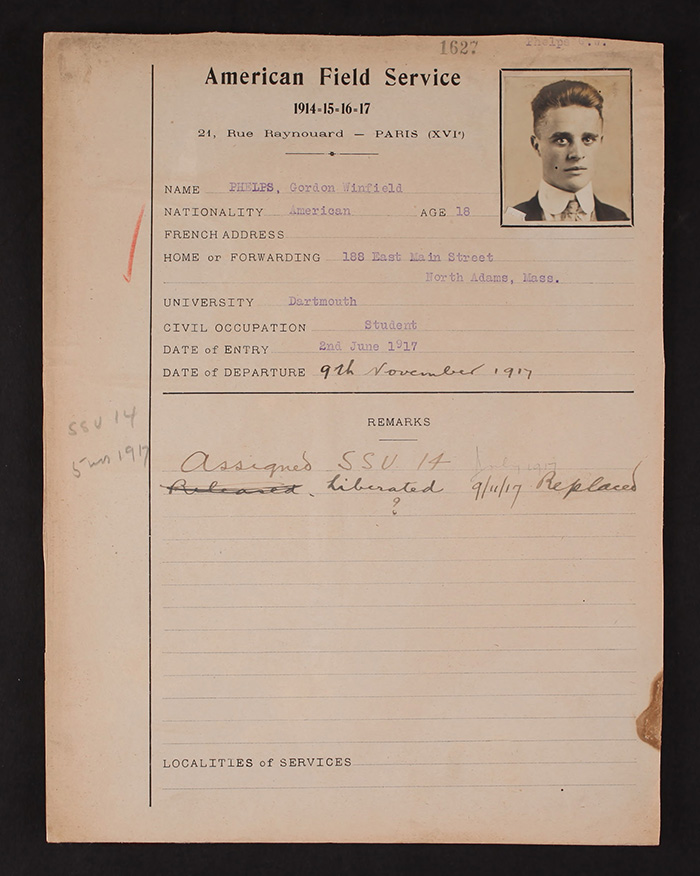 1627 Phelps G.W.
American Field Service
1914-15-16-17
21, Rue Raynouard — PARIS (XVIe)
NAME PHELPS, Gordon Winfield
NATIONALITY American AGE 18
FRENCH ADDRESS
HOME or FORWARDING 188 East Main Street
North Adams, Mass.
UNIVERSITY Dartmouth
CIVIL OCCUPATION Student
DATE of ENTRY 2nd June 1917
DATE of DEPARTURE 9th November 1917
REMARKS
SSU 14
5 mos 1917
Assigned SSU 14 July 1917
Released. Liberated 9/11/17 Replaced
?
LOCALITIES of SERVICES